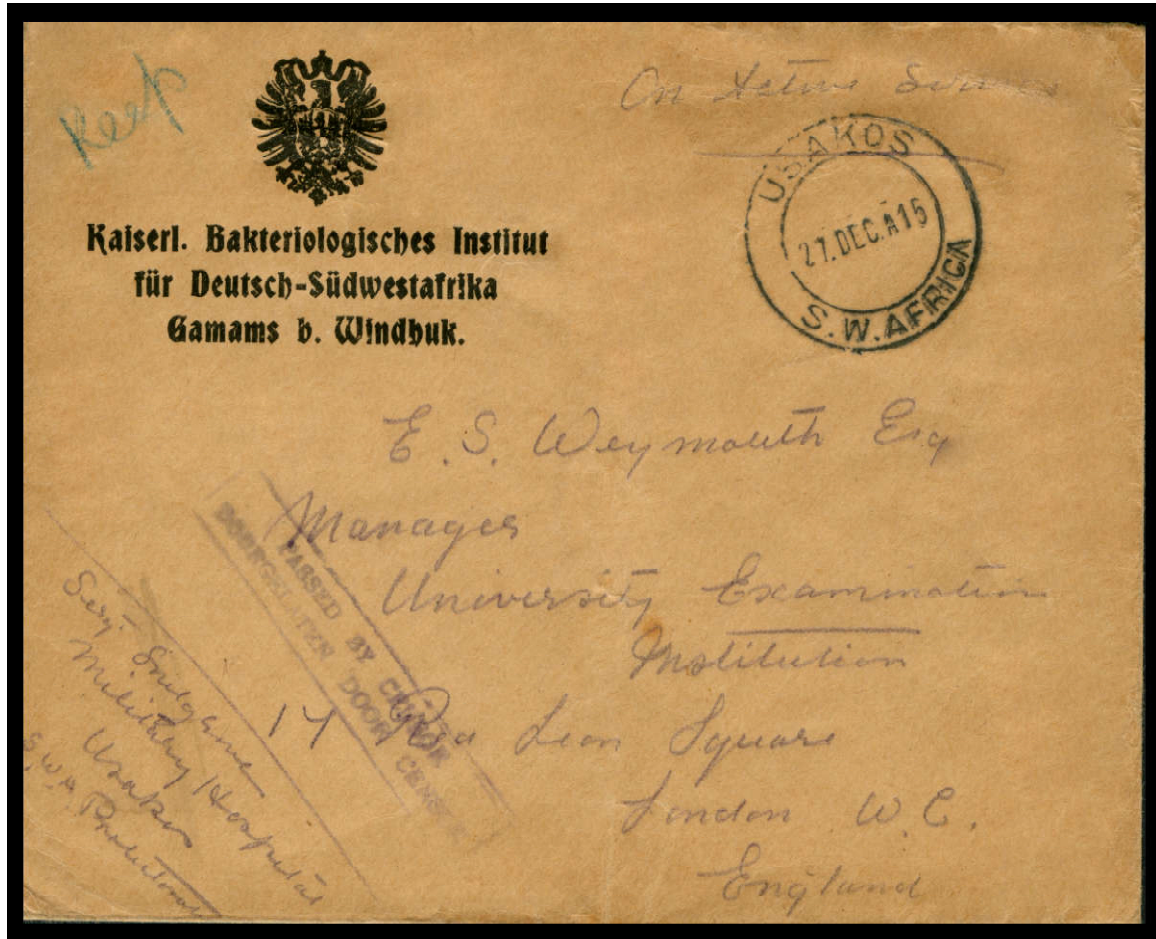 Keep
On Active Service
Kaiserl. Bakteriologisches Institut
für Deutsch-Südwestafrika
Gamams b. Windhuk.
USAKOS
27.DEC.A15
S.W.AFRICA
E. S. Weymouth Esq
Manager
University Examination
Institution
17 Red Lion Square
London W.C.
England
PASSED BY CENSOR
DOORGELATEN DOOR CENSOR
Military Hospital
Usakos
S.W.A. Protectorate